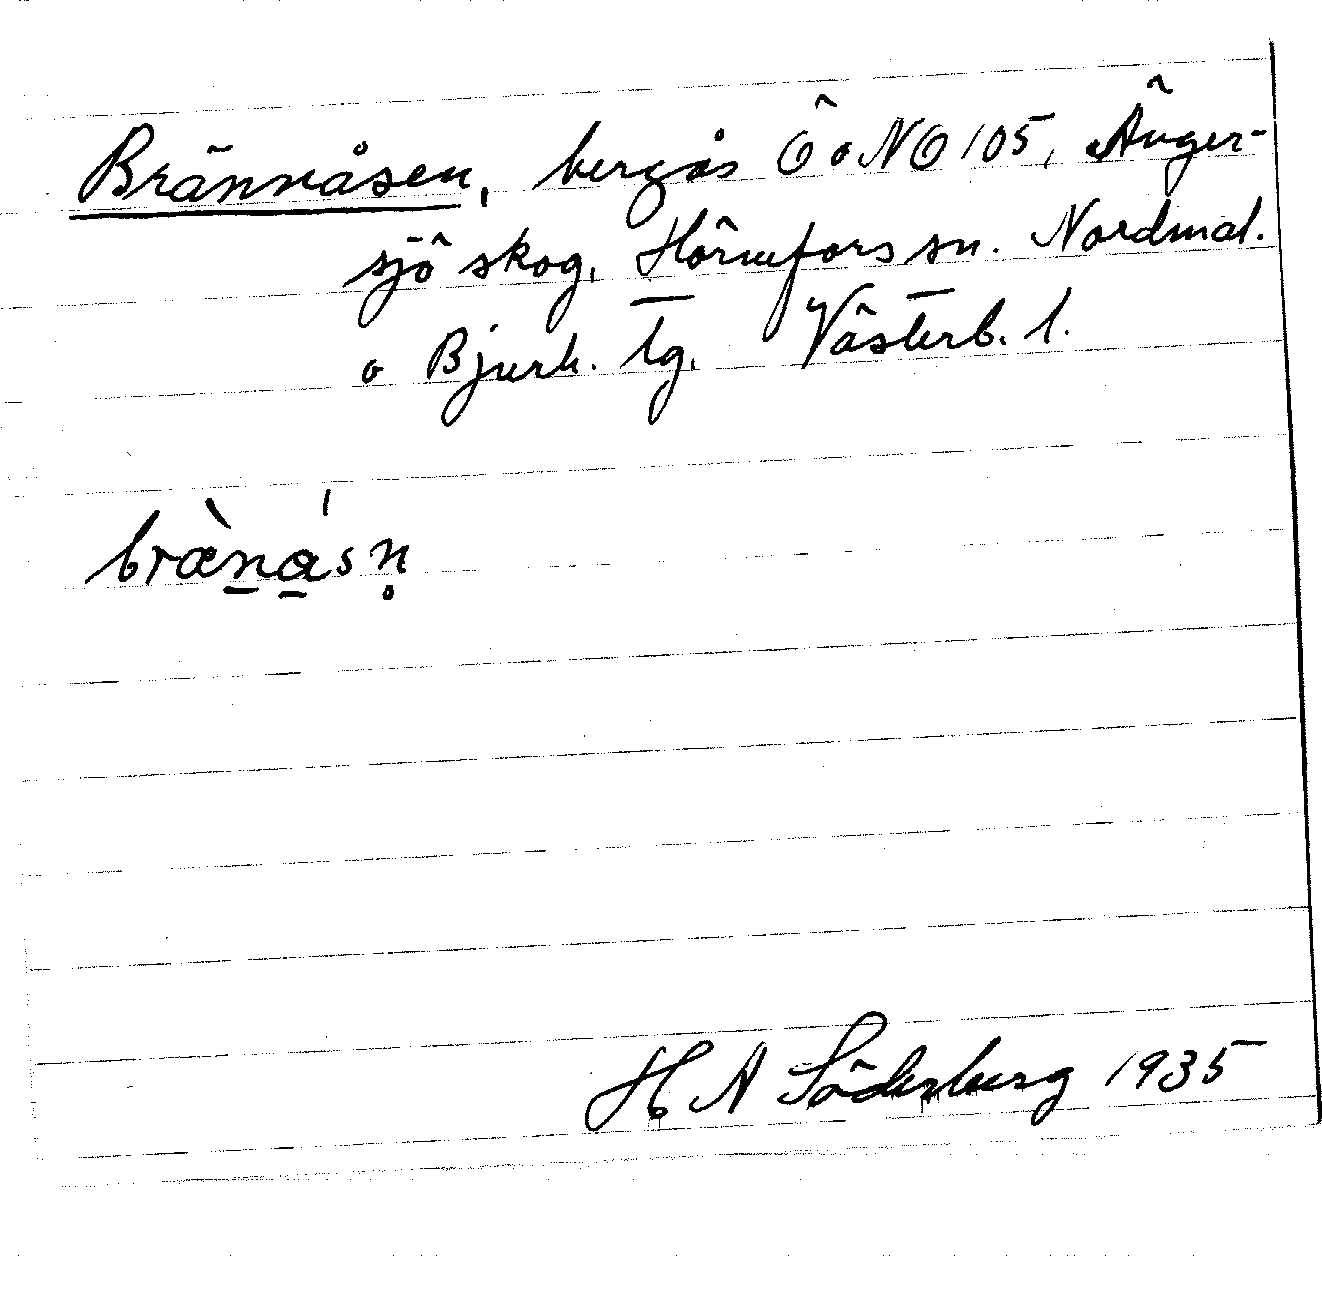 Brännåsen, bergås Ö o NO 105, Ånger-
sjö skog, Hörnefors sn. Nordmal.
o Bjurh. tg. Västerb. l.
bræ̀n̠á̠sn̥
H A Söderberg 1935